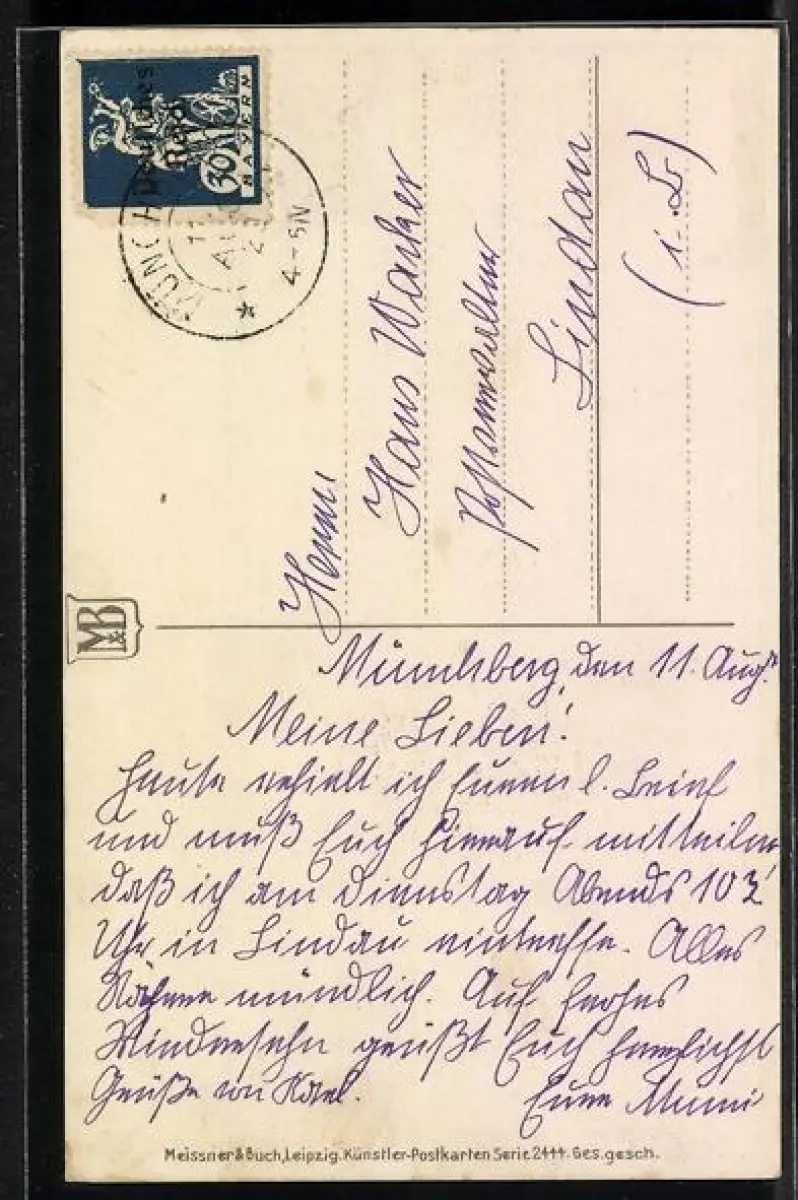 Deutsches
Reich
30
BAYERN
MÜNCH
11
AUG
2
4-5 N
*
Herrn
Hans Wacker
Postverwalter
Lindau
(i. B.)
M&B
den 11. Aug.
Meine Lieben!
Heute erhielt ich Euren l. Brief
und muß Euch hierauf mitteilen
daß ich am Dienstag Abends 10
Uhr in Lindau eintreffe. Alles
Nähere mündlich. Auf frohes
Wiedersehn grüßt Euch herzlichst
Grüße von Karl. Eure
Meissner & Buch, Leipzig. Künstler-Postkarten Serie 2444. Ges. gesch.